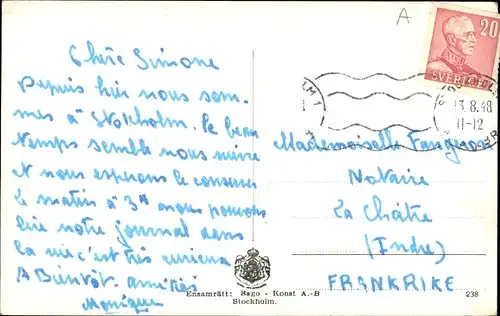 A
Chère Simone
Depuis hier nous som-
mes à Stokholm. Le beau
temps semble nous suivre
et nous esperons le conserver
le matin à 3h nous pouvons
lire notre journal dans
la rue c'est très curieux
A Bientôt. amitiés
Monique
20
SVERIGE
LM 1
13.8.48
11-12
Mademoiselle Fangeron
Notaire
La Châtre
(Indre)
FRANKRIKE
Ensamrätt: Sago - Konst A.-B
Stockholm.
238